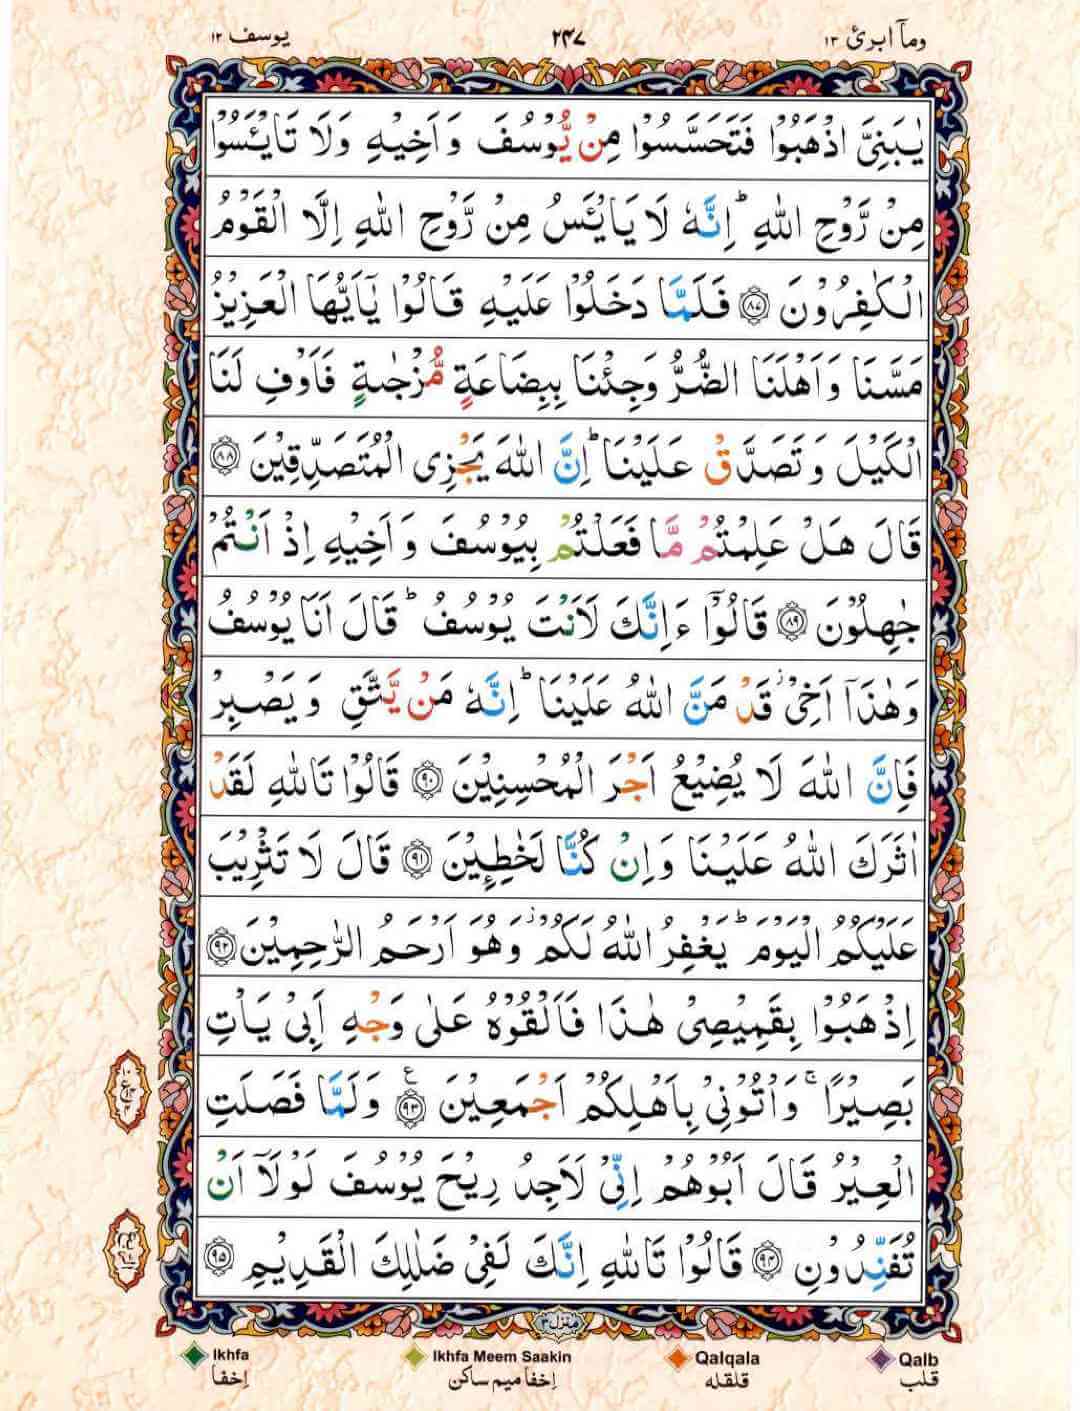 ومآ ابرئ ۱۳
۲۴۷
یوسف ۱۲
یٰبَنِیَّ اذْهَبُوْا فَتَحَسَّسُوْا مِنْ یُّوْسُفَ وَاَخِیْهِ وَلَا تَایْـَٔسُوْا
مِنْ رَّوْحِ اللهِ ؕ اِنَّهٗ لَا یَایْـَٔسُ مِنْ رَّوْحِ اللهِ اِلَّا الْقَوْمُ
الْكٰفِرُوْنَ ﴿۸۷﴾ فَلَمَّا دَخَلُوْا عَلَیْهِ قَالُوْا یٰۤاَیُّهَا الْعَزِیْزُ
مَسَّنَا وَاَهْلَنَا الضُّرُّ وَجِئْنَا بِبِضَاعَةٍ مُّزْجٰىةٍ فَاَوْفِ لَنَا
الْكَیْلَ وَتَصَدَّقْ عَلَیْنَا ؕ اِنَّ اللهَ یَجْزِی الْمُتَصَدِّقِیْنَ ﴿۸۸﴾
قَالَ هَلْ عَلِمْتُمْ مَّا فَعَلْتُمْ بِیُوْسُفَ وَاَخِیْهِ اِذْ اَنْتُمْ
جٰهِلُوْنَ ﴿۸۹﴾ قَالُوْۤا ءَاِنَّكَ لَاَنْتَ یُوْسُفُ ؕ قَالَ اَنَا یُوْسُفُ
وَهٰذَاۤ اَخِیْ ؗ قَدْ مَنَّ اللهُ عَلَیْنَا ؕ اِنَّهٗ مَنْ یَّتَّقِ وَیَصْبِرْ
فَاِنَّ اللهَ لَا یُضِیْعُ اَجْرَ الْمُحْسِنِیْنَ ﴿۹۰﴾ قَالُوْا تَاللهِ لَقَدْ
اٰثَرَكَ اللهُ عَلَیْنَا وَاِنْ كُنَّا لَخٰطِـِٕیْنَ ﴿۹۱﴾ قَالَ لَا تَثْرِیْبَ
عَلَیْكُمُ الْیَوْمَ ؕ یَغْفِرُ اللهُ لَكُمْ ؗ وَهُوَ اَرْحَمُ الرّٰحِمِیْنَ ﴿۹۲﴾
اِذْهَبُوْا بِقَمِیْصِیْ هٰذَا فَاَلْقُوْهُ عَلٰی وَجْهِ اَبِیْ یَاْتِ
بَصِیْرًا ۚ وَاْتُوْنِیْ بِاَهْلِكُمْ اَجْمَعِیْنَ ﴿۹۳﴾ ع وَلَمَّا فَصَلَتِ
الْعِیْرُ قَالَ اَبُوْهُمْ اِنِّیْ لَاَجِدُ رِیْحَ یُوْسُفَ لَوْلَاۤ اَنْ
تُفَنِّدُوْنِ ﴿۹۴﴾ قَالُوْا تَاللهِ اِنَّكَ لَفِیْ ضَلٰلِكَ الْقَدِیْمِ ﴿۹۵﴾
منزل ۳
Ikhfa
Ikhfa Meem Saakin
Qalqala
Qalb
اِخفا
اِخفا میم ساکن
قلقلہ
قلب